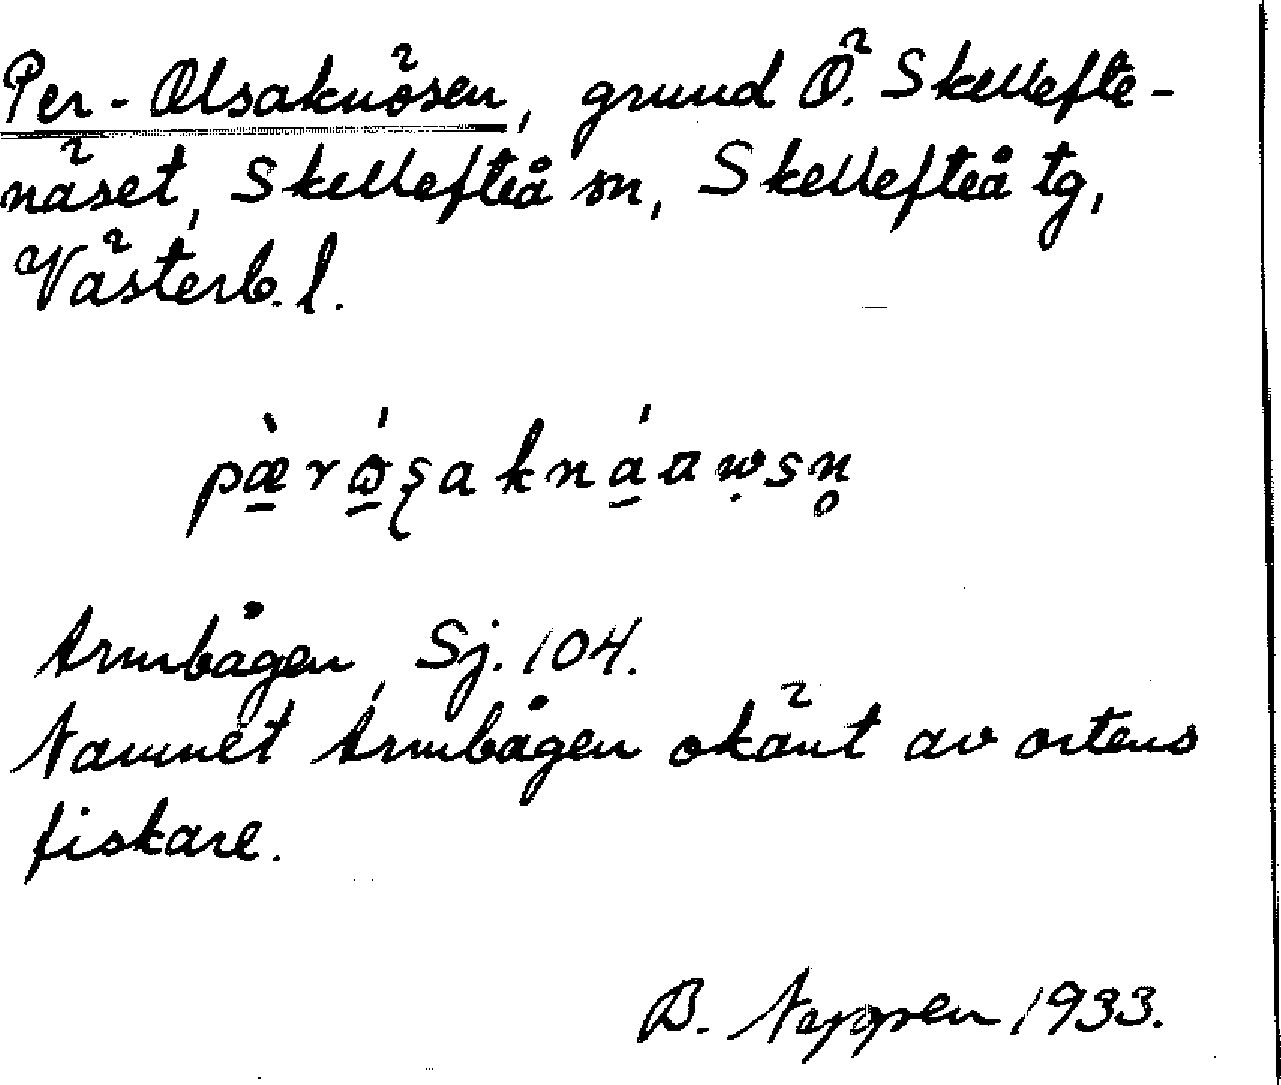 Per-Olsaknösen, grund Ö. Skellefte-
näset, Skellefteå sn, Skellefteå tg,
Västerb. l.
Armbågen, Sj. 104.
Namnet Armbågen okänt av ortens
fiskare.
B. 1933.